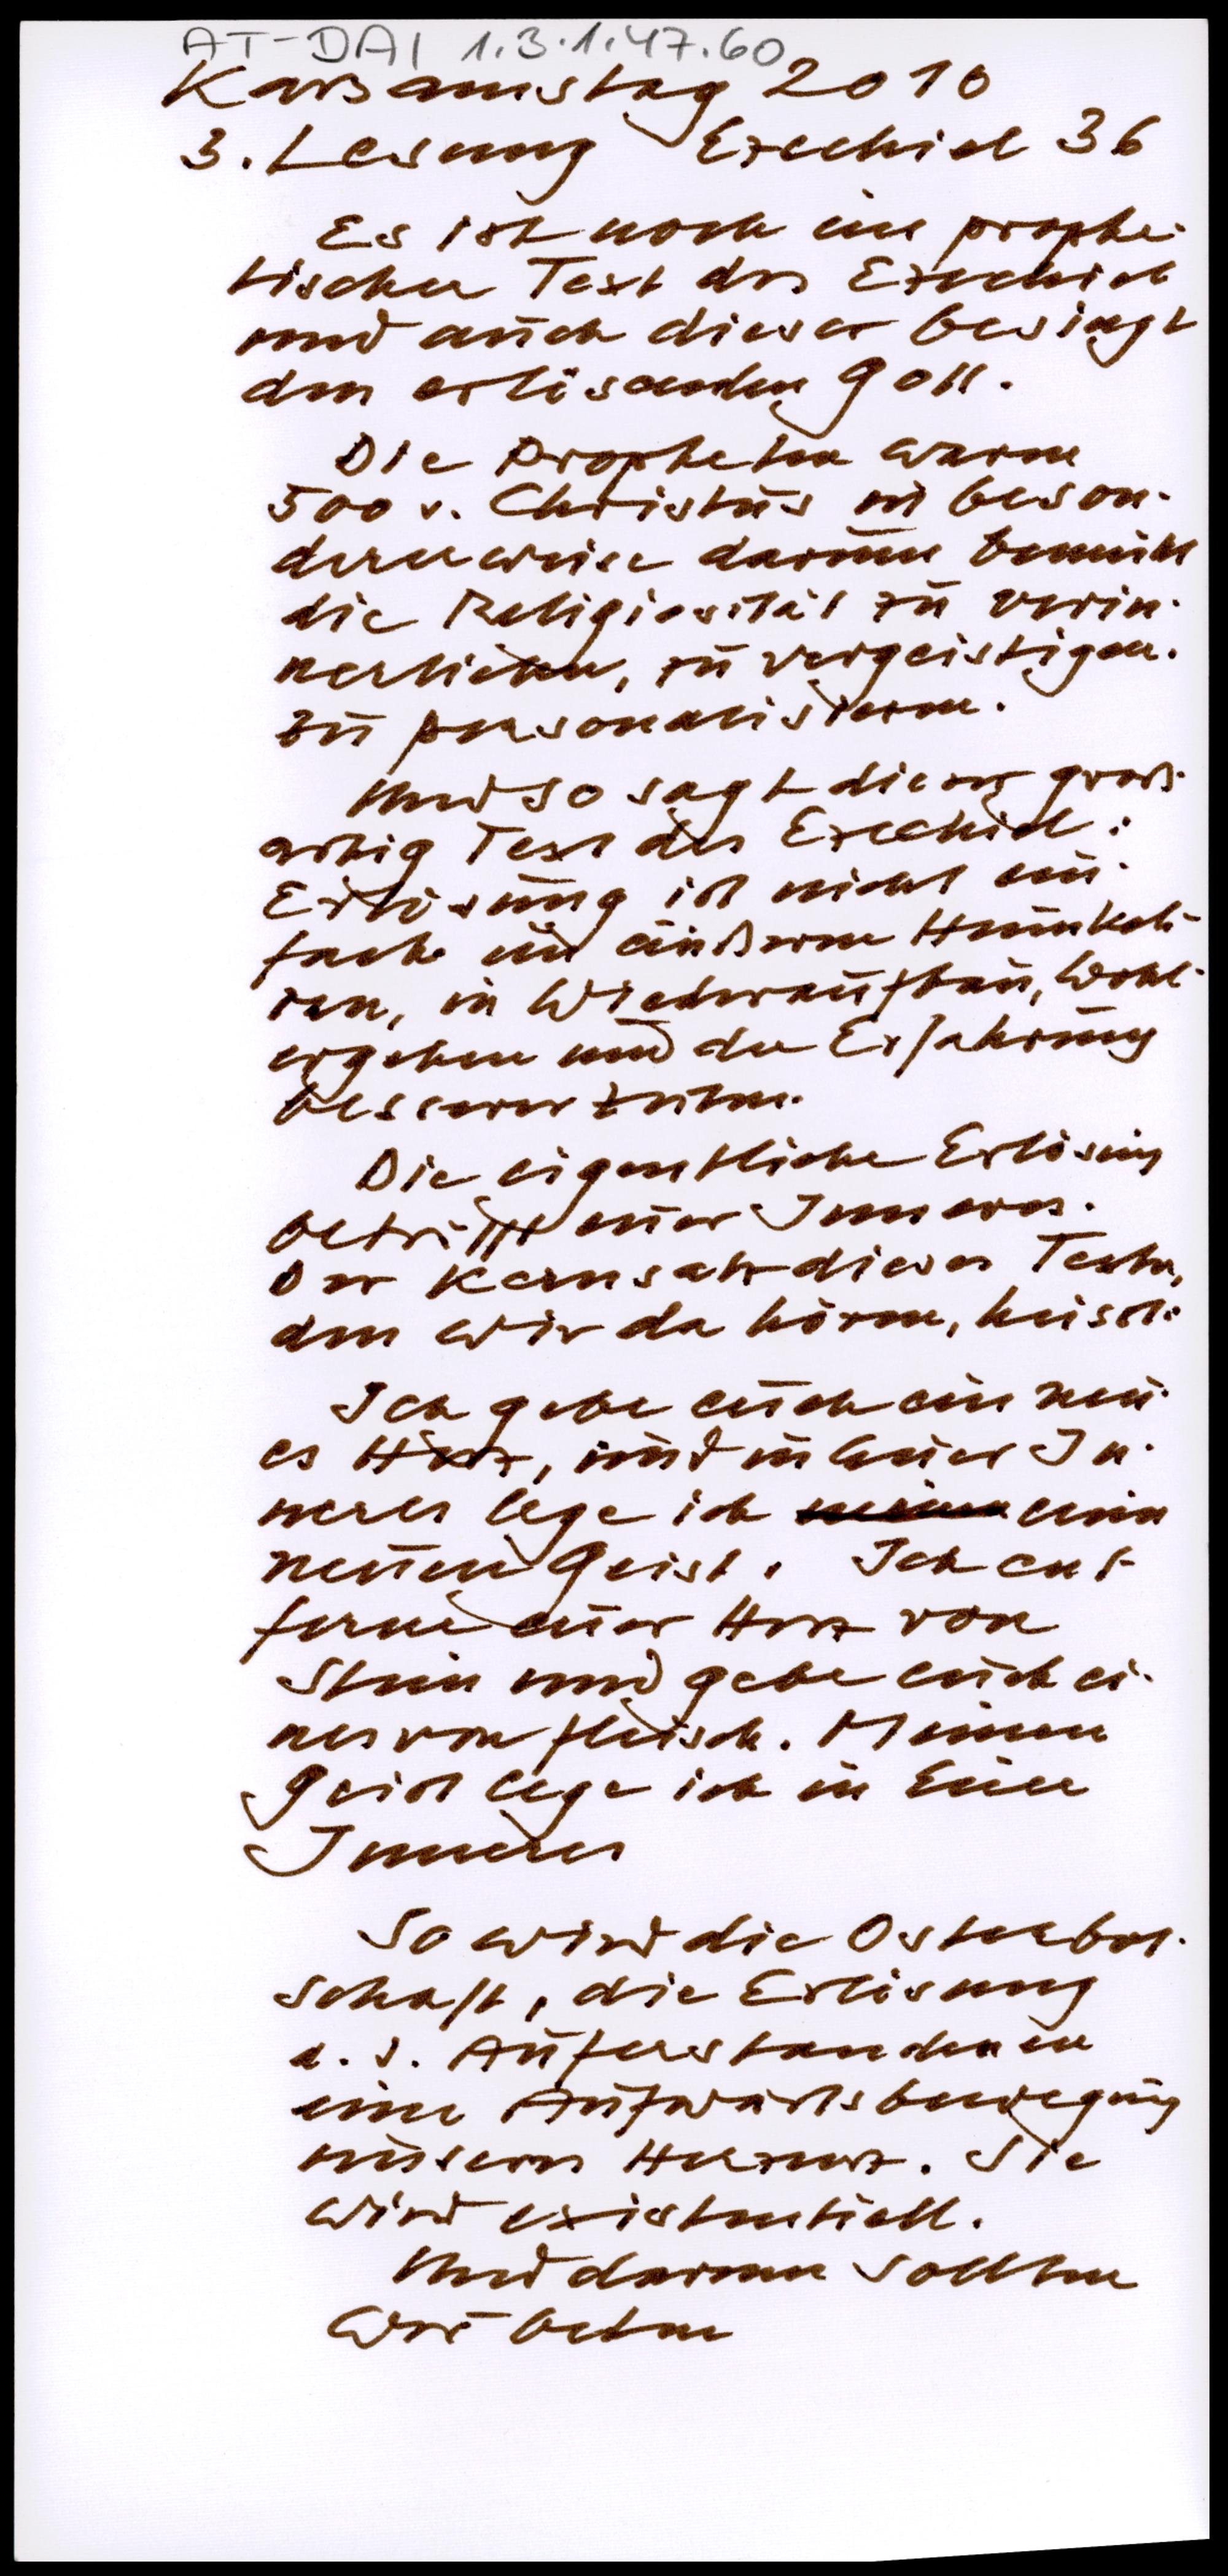 AT-DAI 1.3.1.47.60
Karsamstag 2010
3. Lesung Ezechiel 36
Es ist noch ein prophe-
tischer Text des Ezechiel
und auch dieser besingt
den erlösenden Gott.
Die Propheten waren
500 v. Christus in beson-
dererweise darum bemüht
die Religiosität zu verin-
nerlichen, zu vergeistigen.
zu personalisieren.
Und so sagt dieser groß-
artig Text des Ezechiel:
Erlösung ist nicht ein-
fach im äußeren Heimkeh-
ren, in Wiederaufbau, Wohl-
ergehen und der Erfahrung
besserer Zeiten.
Die eigentliche Erlösung
betrifft euer Inneres.
Der Kernsatz dieses Textes,
den wir da hören, heisst:
Ich gebe euch ein neu-
es Herz, und in Euer In-
neres lege ich einen
neuen Geist. Ich ent-
ferne euer Herz von
Stein und gebe euch ei-
nes von Fleisch. Meinen
Geist lege ich in Euer
Inneres
So wird die Osterbot-
schaft, die Erlösung
d. d. Auferstandenen
eine Aufwärtsbewegung
unseres Herzens. Sie
wird existentiell.
Und darum sollten
wir beten